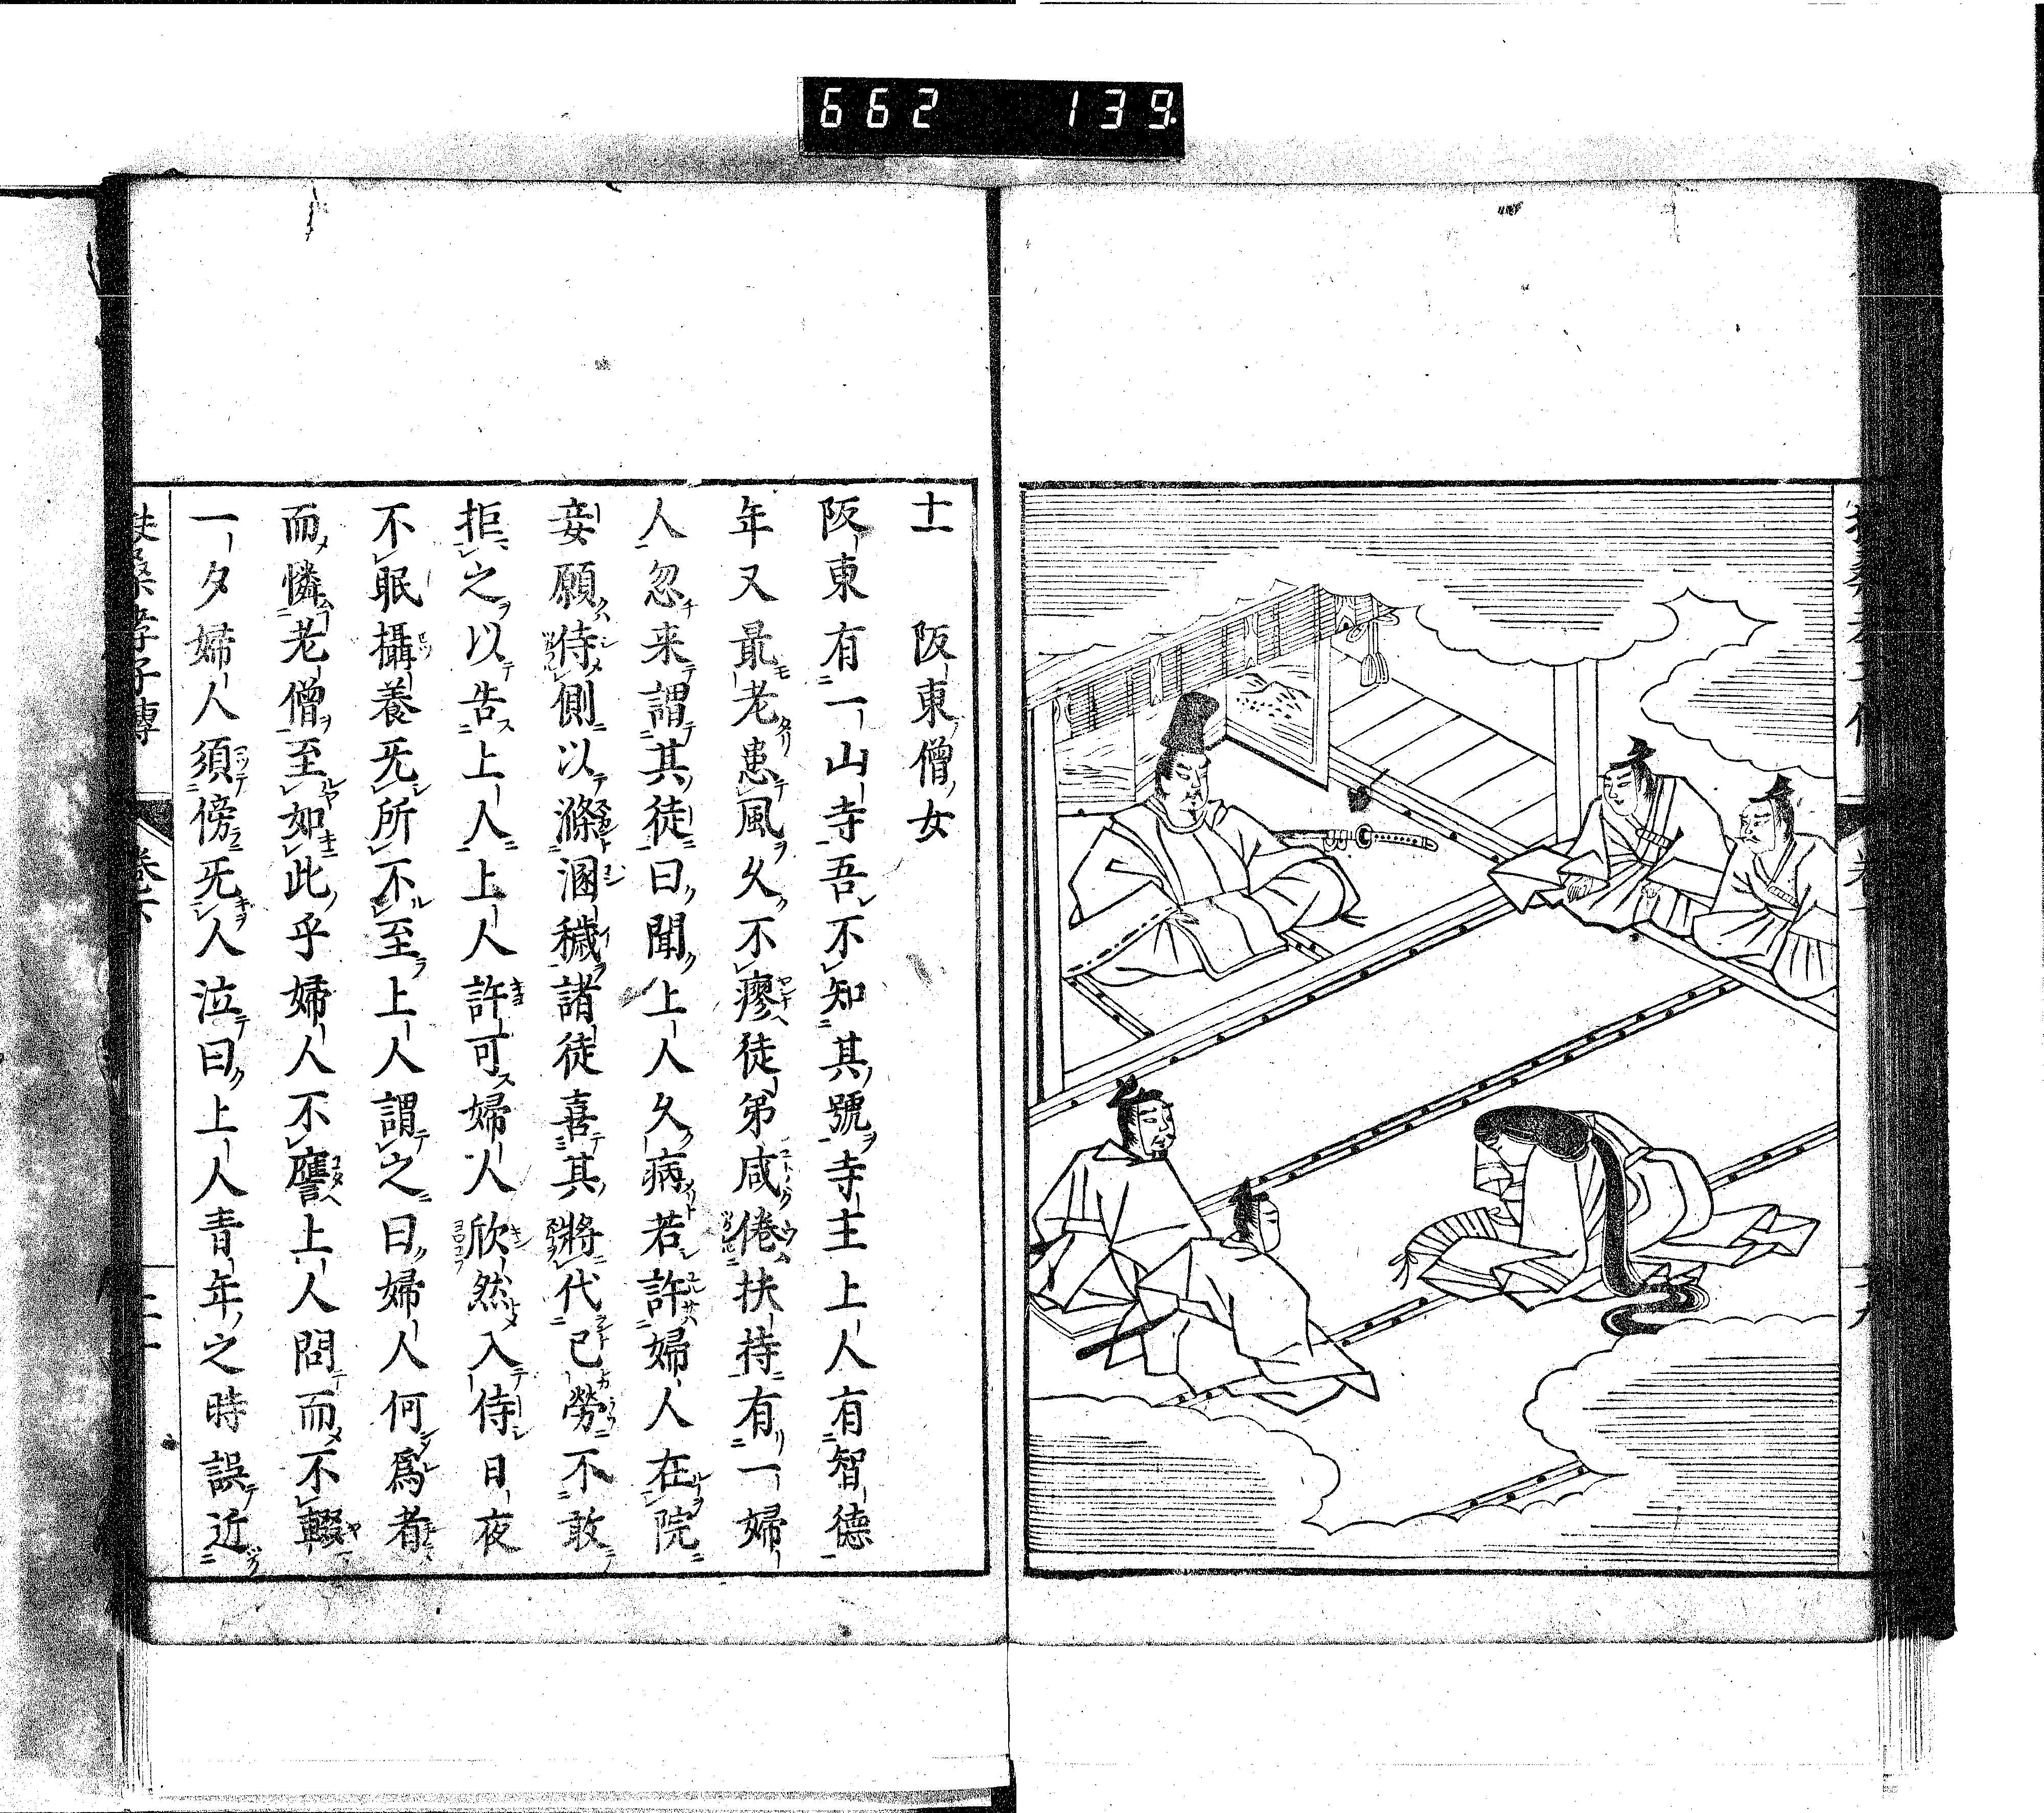 662 139
十一 阪東僧女
阪東有一山寺吾不知其號寺主上人有智德
年又最老患風久不瘳徒弟咸倦扶持有一婦
人忽来謂其徒曰聞上人久病若許婦人在院
妾願侍側以滌溷穢諸徒喜其將代己勞不敢
拒之以告上人上人許可婦人欣然入侍日夜
不眠攝養旡所不至上人謂之曰婦人何爲者
而憐老僧至如此乎婦人不譍上人問而不輟
一夕婦人須傍旡人泣曰上人青年之時誤近
扶桑孝子傳 卷下